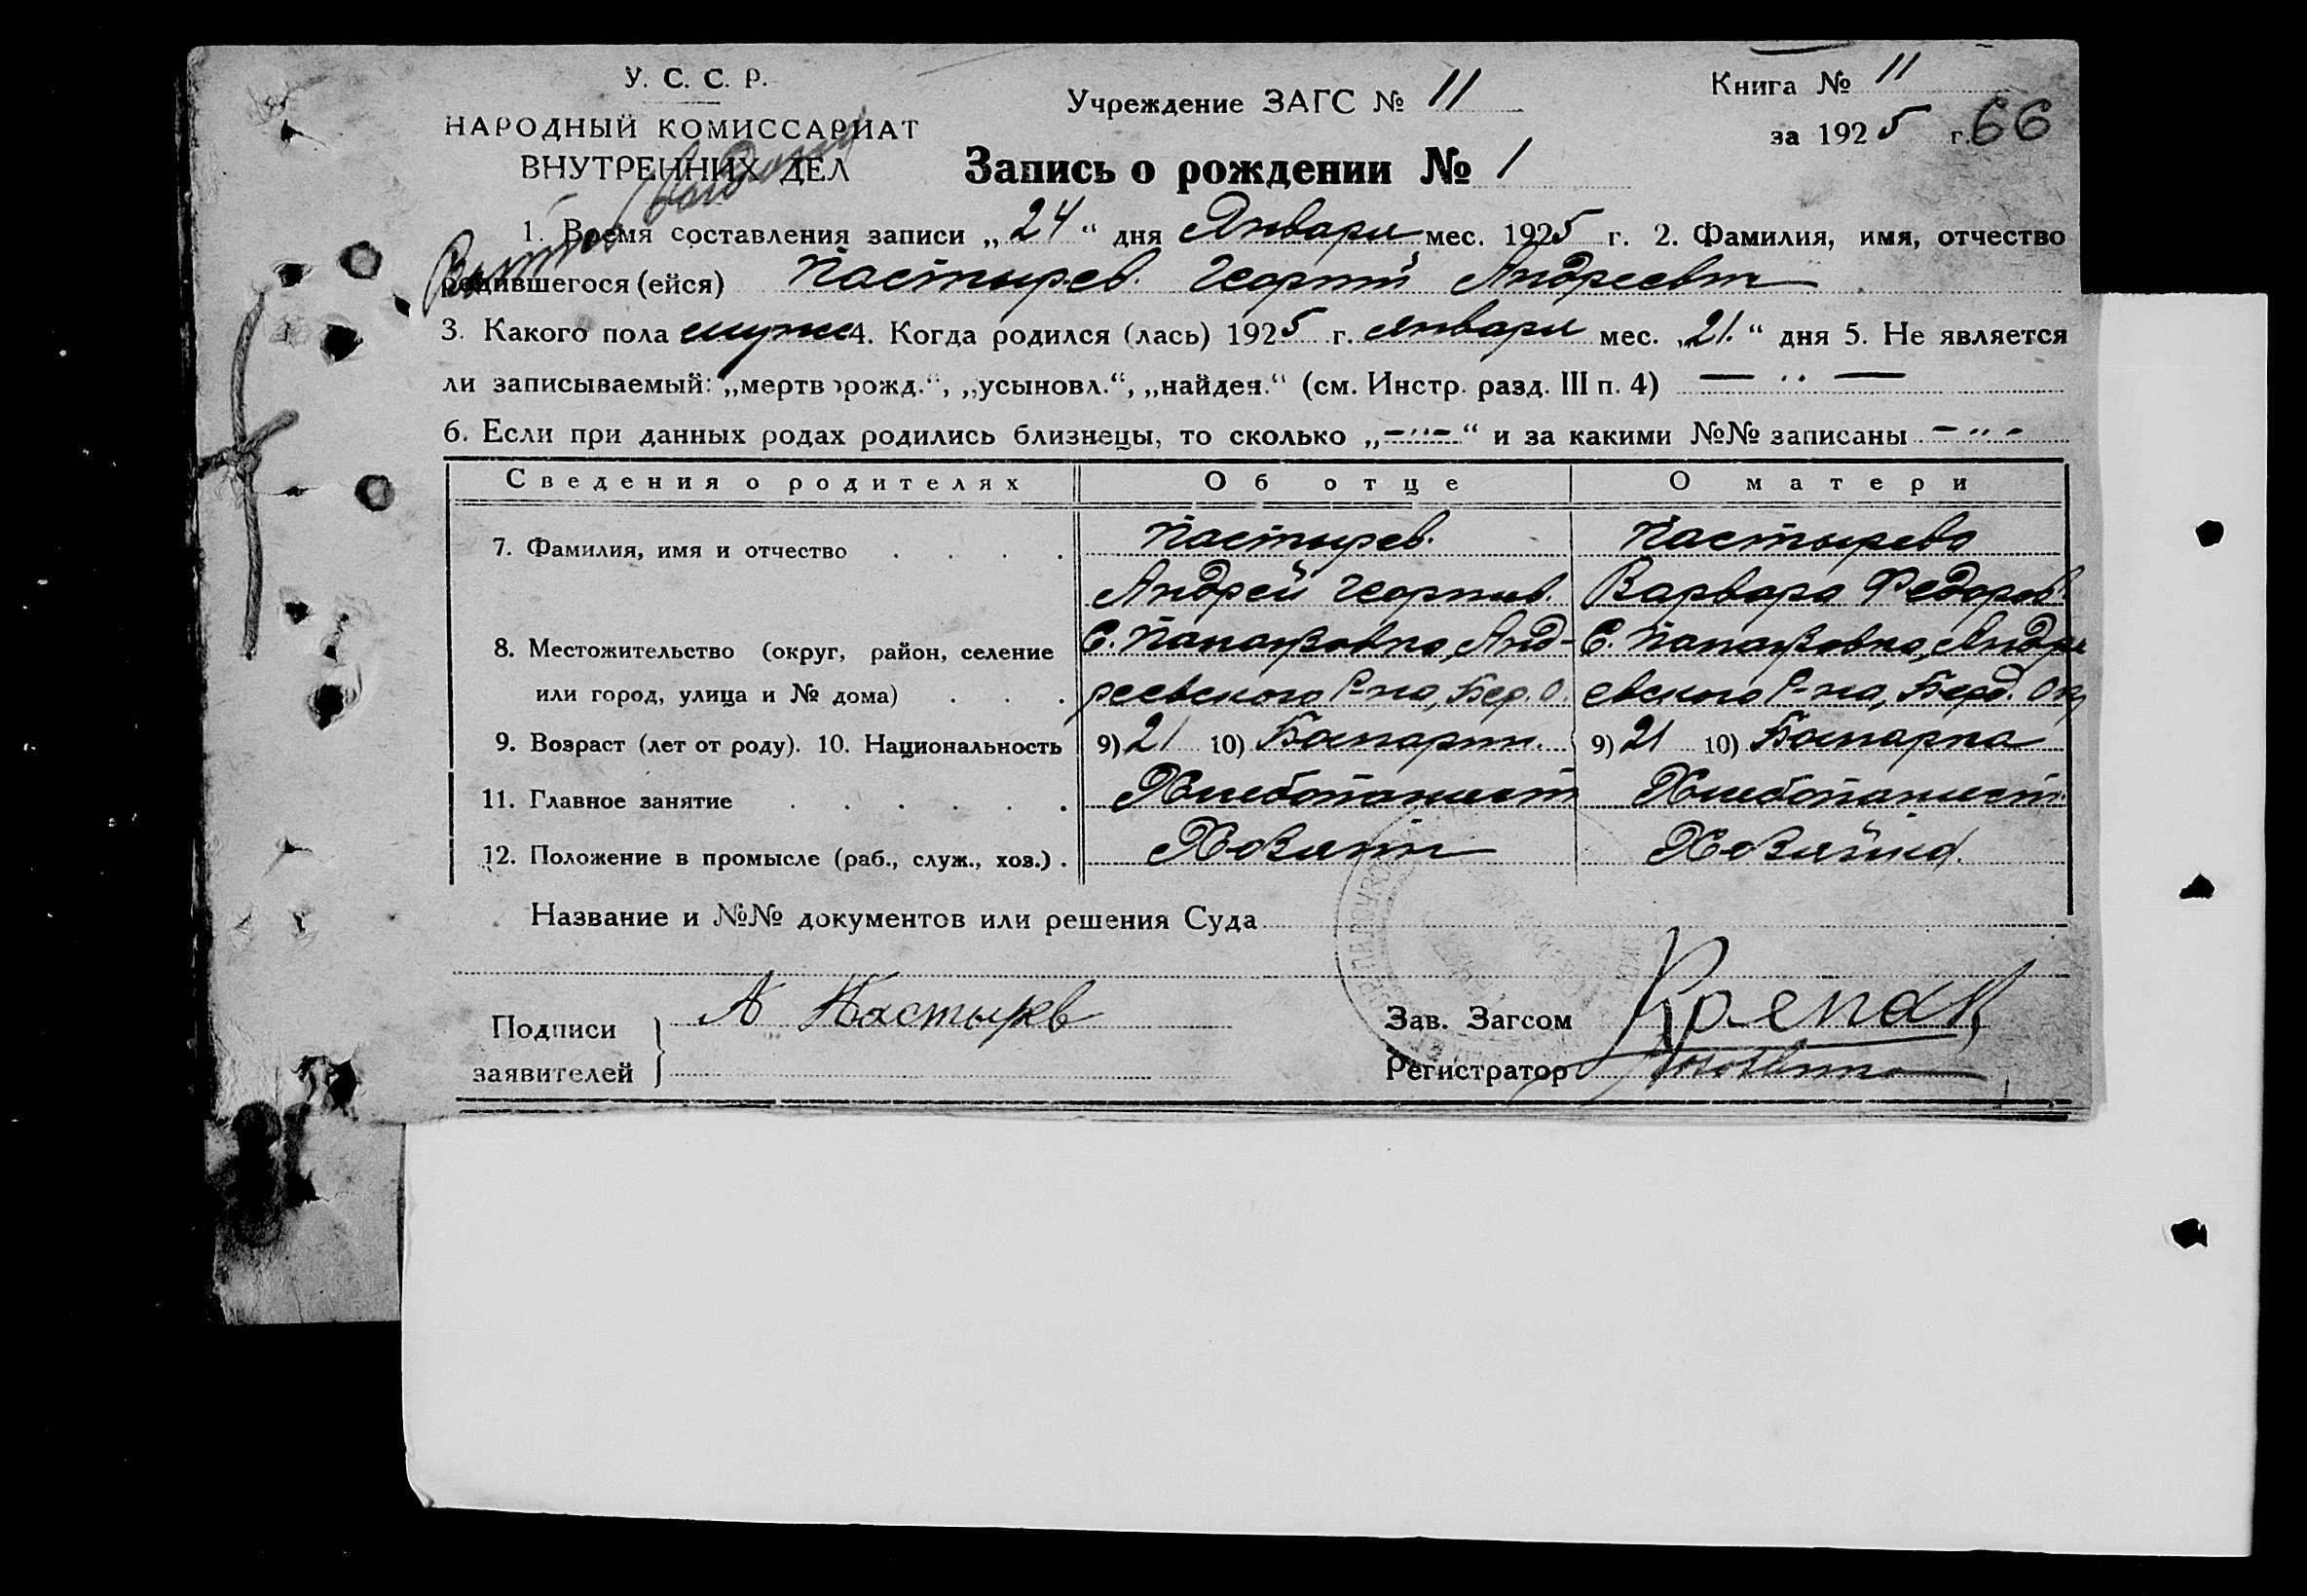 У. С. С. Р.
НАРОДНЫЙ КОМИССАРИАТ
ВНУТРЕННИХ ДЕЛ
Учреждение ЗАГС № 11
Книга № 11
за 1925 г. 66
Запись о рождении № 1
1. Время составления записи „24“ дня Января мес. 1925 г. 2. Фамилия, имя, отчество
родившегося (ейся) Пастырев Георгий Андреевич
3. Какого пола мужс 4. Когда родился (лась) 1925 г. января мес. „21.“ дня 5. Не является
ли записываемый: „мертворожд.“, „усыновл.“, „найден.“ (см. Инстр. разд. III п. 4) — ·· —
6. Если при данных родах родились близнецы, то сколько „-··-“ и за какими №№ записаны - ·· -
Сведения о родителях Об отце О матери
7. Фамилия, имя и отчество . . . . Пастырев. Пастырева
Андрей Георгиев. Варвара Федоров.
8. Местожительство (округ, район, селение С. Андре
или город, улица и № дома) . . . реевского Р-на, Бер. О. евского Р-на, Берд. Окр
9. Возраст (лет от роду). 10. Национальность 9) 21 10) Болгарин. 9) 21 10) Болгарка
11. Главное занятие . . . . . . Хлебопашест Хлебопашест.
12. Положение в промысле (раб., служ., хоз.) . Хозяин Хозяйка.
Название и №№ документов или решения Суда
Подписи А Пастырев
заявителей
Зав. Загсом
Регистратор